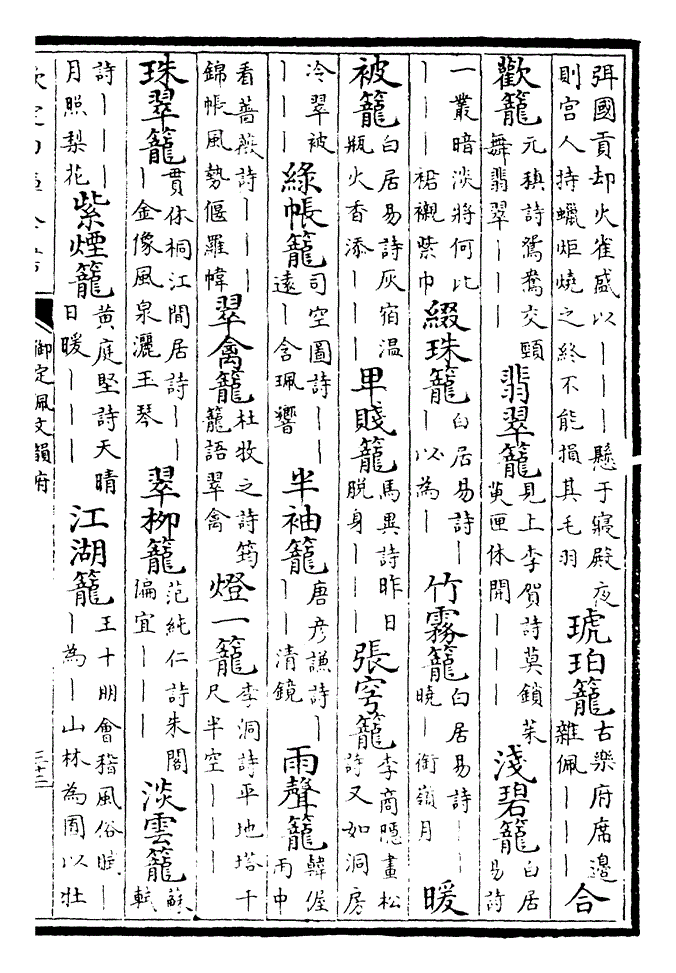 弭國貢却火雀盛以｜｜｜懸于寢殿夜則宮人持蠟炬燒之終不能損其毛羽琥珀籠古樂府席邊雜佩｜｜｜合
歡籠元稹詩鴛鴦交頸舞翡翠｜｜｜翡翠籠見上李賀詩莫鎖茱萸匣休開｜｜｜淺碧籠白居易詩
一叢暗淡將何比｜｜｜｜裙襯紫巾綴珠籠白居易詩｜｜以為｜竹霧籠白居易詩｜｜曉｜銜嶺月暖
被籠白居易詩灰宿溫瓶火香添｜｜｜卑賤籠馬異詩昨日脱身｜｜｜張穹籠李商隱畫松詩又如洞房
冷翠被｜｜｜綠帳籠司空圖詩｜｜遠｜含珮響半袖籠唐彦謙詩｜｜｜清鏡雨聲籠韓偓雨中
看薔薇詩｜｜｜｜錦帳風勢偃羅幃翠禽籠杜牧之詩筠籠語翠禽燈一籠李洞詩平地塔千尺半空｜｜｜
珠翠籠貫休桐江閒居詩｜｜｜金像風泉灑玉琴翠柳籠范純仁詩朱閣偏宜｜｜｜淡雲籠蘇軾
詩｜｜｜月照梨花紫煙籠黄庭堅詩天晴日暖｜｜｜江湖籠王十朋會稽風俗賦｜｜為｜山林為囿以壯
御定佩文韻府
三十三